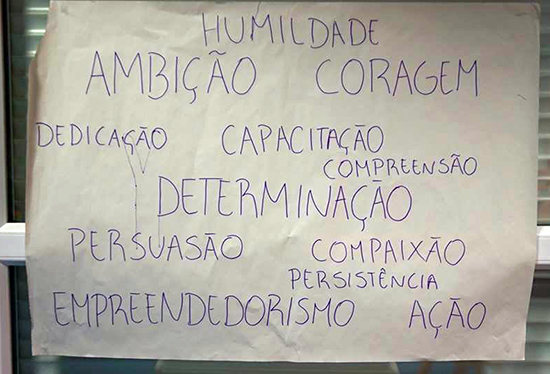 HUMILDADE
AMBIÇÃO CORAGEM
DEDICAÇÃO CAPACITAÇÃO
COMPREENSÃO
DETERMINAÇÃO
PERSUASÃO COMPAIXÃO
PERSISTÊNCIA
EMPREENDEDORISMO AÇÃO